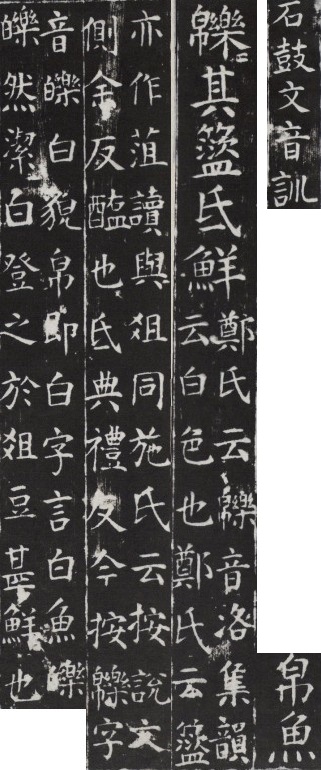 石鼓文音訓
帛魚
⿰帛樂〻其⿱𥫗盗氐鮮
鄭氏云⿰帛樂音洛集韻
云白色也鄭氏云⿱𥫗盗
亦作菹讀與俎同施氏云按說文
側余反醢也氐典禮反今按⿰帛樂字
音皪白貌帛即白字言白魚皪
皪然潔白登之於俎豆甚鮮也